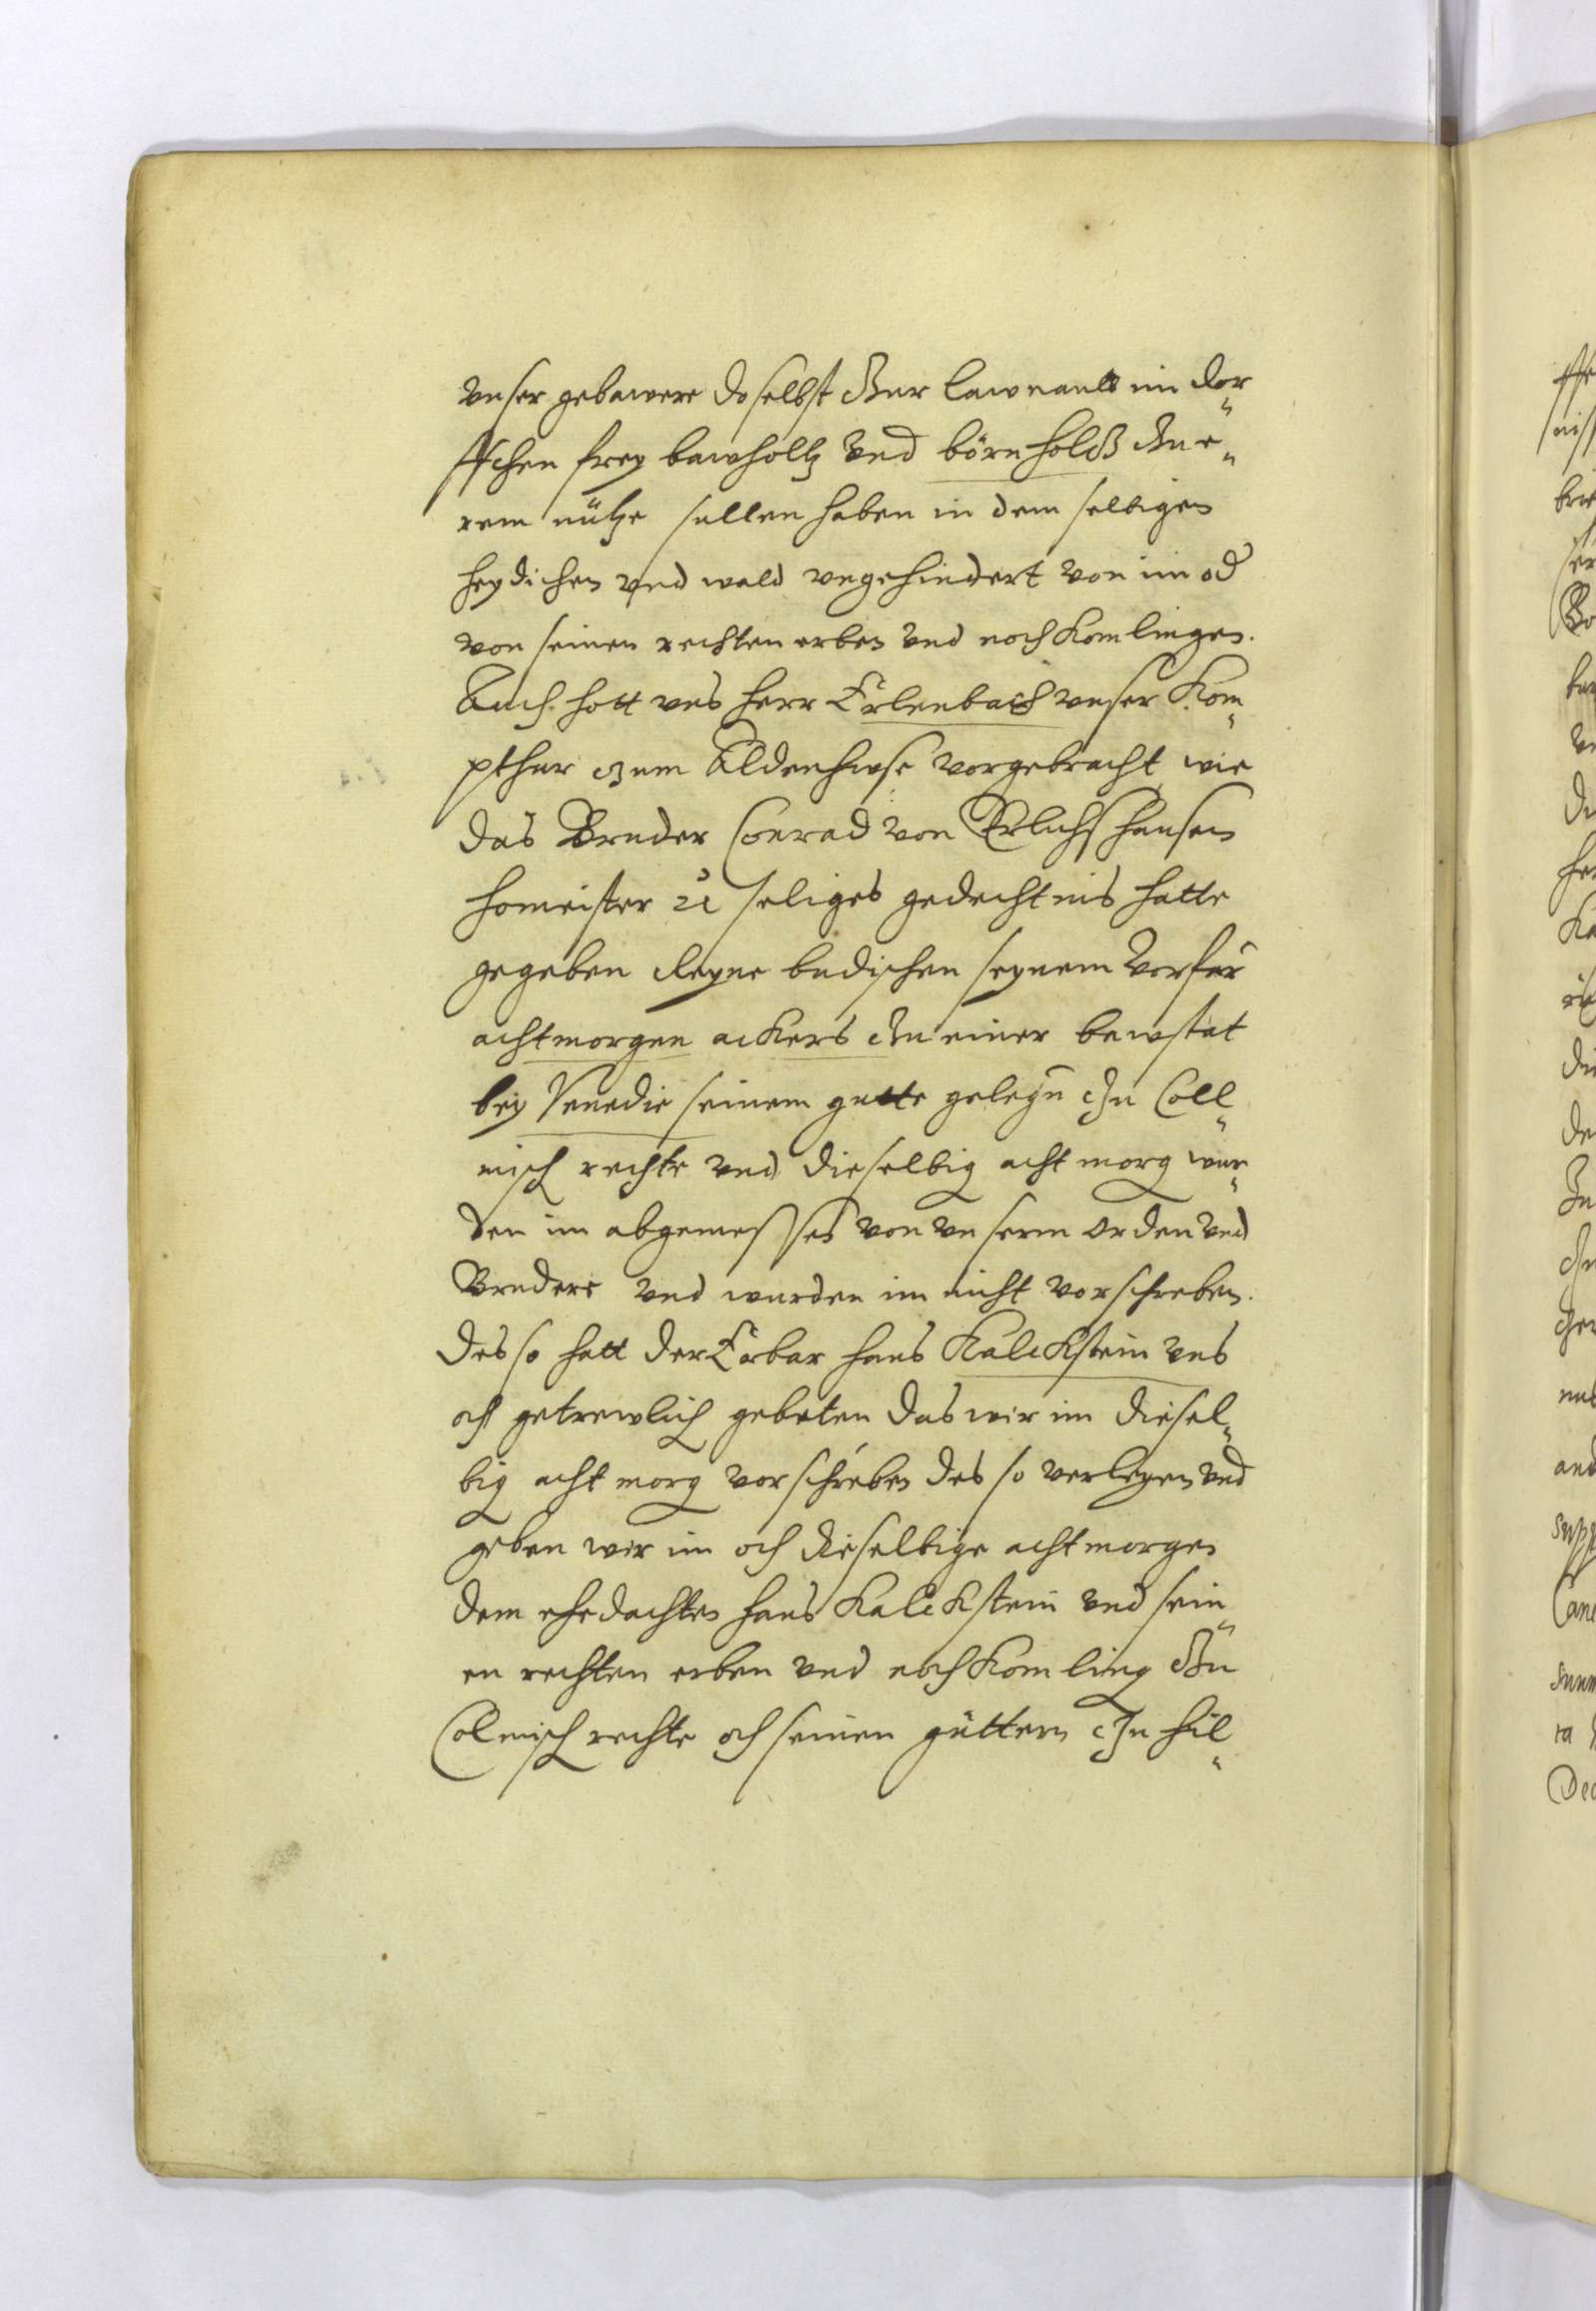 vnser gebawere doselbst czur lawnautt im dor„
ffchen frey bawholtz vnd börnholcz czu e„
rem nütze sullen haben in dem selbigen
heydichen vnd wald vngehindert von im od
von seinen rechten erben vnd nochkomlingen.
Auch hott vns herr Erlenbach vnser Kom„
pthur czum Aldenhwse vorgebracht wie
das Bruder Conrad von Erlichshausen
homeister ꝛc seliges gedechtnis hatte
gegeben cleyne budischen seynem vorfar
achtmorgen ackers czu einer bewstat
bey Venedie seinem gutte gelegn czu Coll„
misch rechte vnd dieselbig acht morg wur„
den im abgemesses von vnserm orden vnd
Brudere vnd wurden im nicht vorschreben.
des so hatt der Erbar hans Kalckstein vns
och getrewlich gebeten das wir im diesel„
big acht morg vorschreben des so verleyen vnd
geben wir im och dieselbige achtmorgen
dem ehedachten hans Kalckstein vnd sein„
en rechten erben vnd nochkomling czu
Colmisch rechte och seinen güttern czu hül„